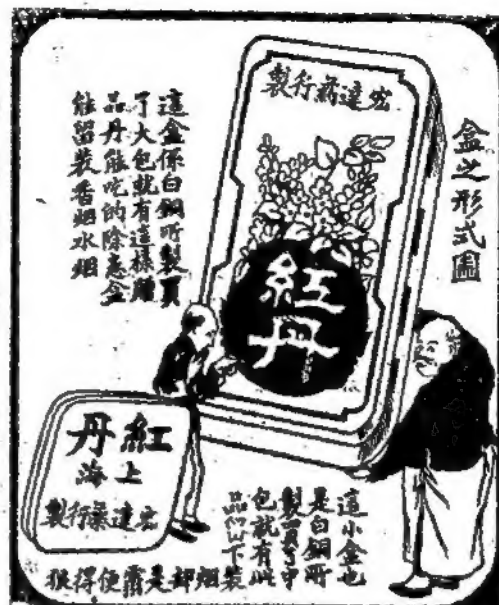 盒之形式圖
宏達葯行製
紅丹
這盒係白銅所製買
了大包就有這樣贈
品丹能吃的除惡盒
能留裝香烟水烟
紅丹
上海
宏達藥行製
這小盒也
是白銅所
製買了中
包就有此
品留下
裝烟却是便得狠